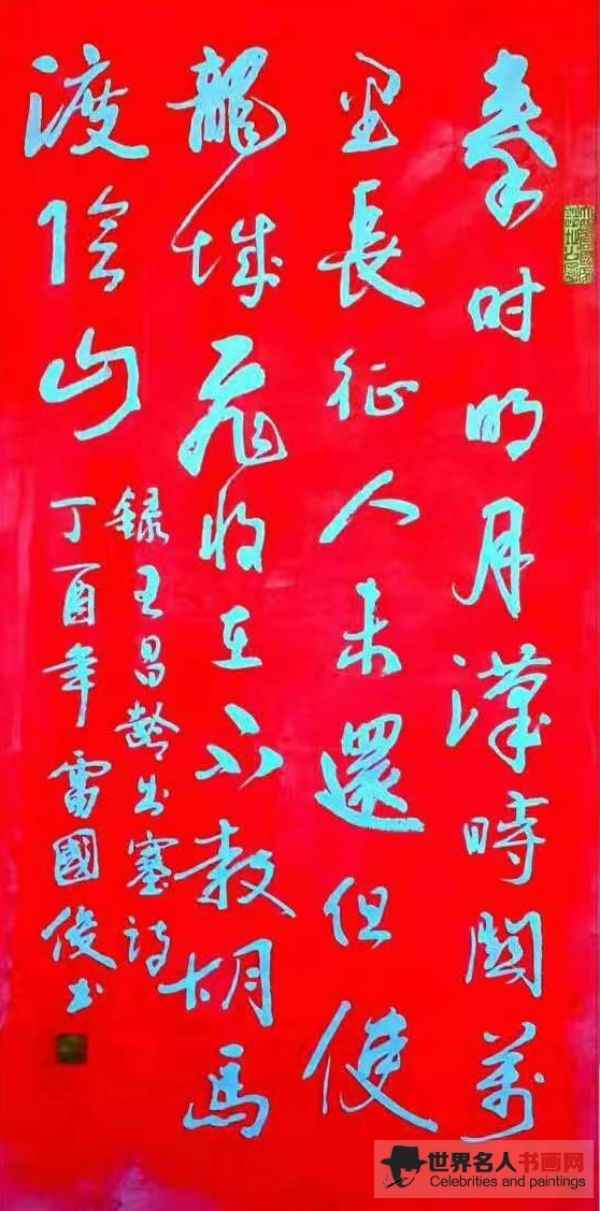 秦时明月漢時關萬
里長征人未還但使
龍城飛将在不教胡馬
渡陰山
録王昌齡出塞诗
丁酉年雷國俊书
世界名人书画网
Celebrities and paintings